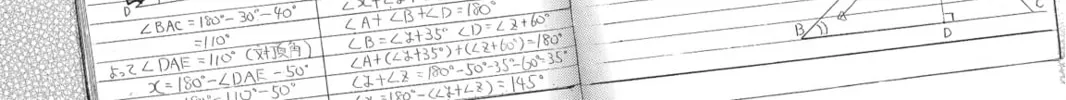 D
∠BAC=180°-30°-40°
=110°
よって∠DAE=110°(対頂角)
x=180°-∠DAE-50°
180°-110°-50°
∠A+∠B+∠D=180°
∠B=∠y+35° ∠D=∠z+60°
∠A+(∠y+35°)+(∠z+60°)=180°
∠y+∠z=180°-50°-35°-60°-35°
∠x=180°-(∠y+∠z)=145°
B
D
C